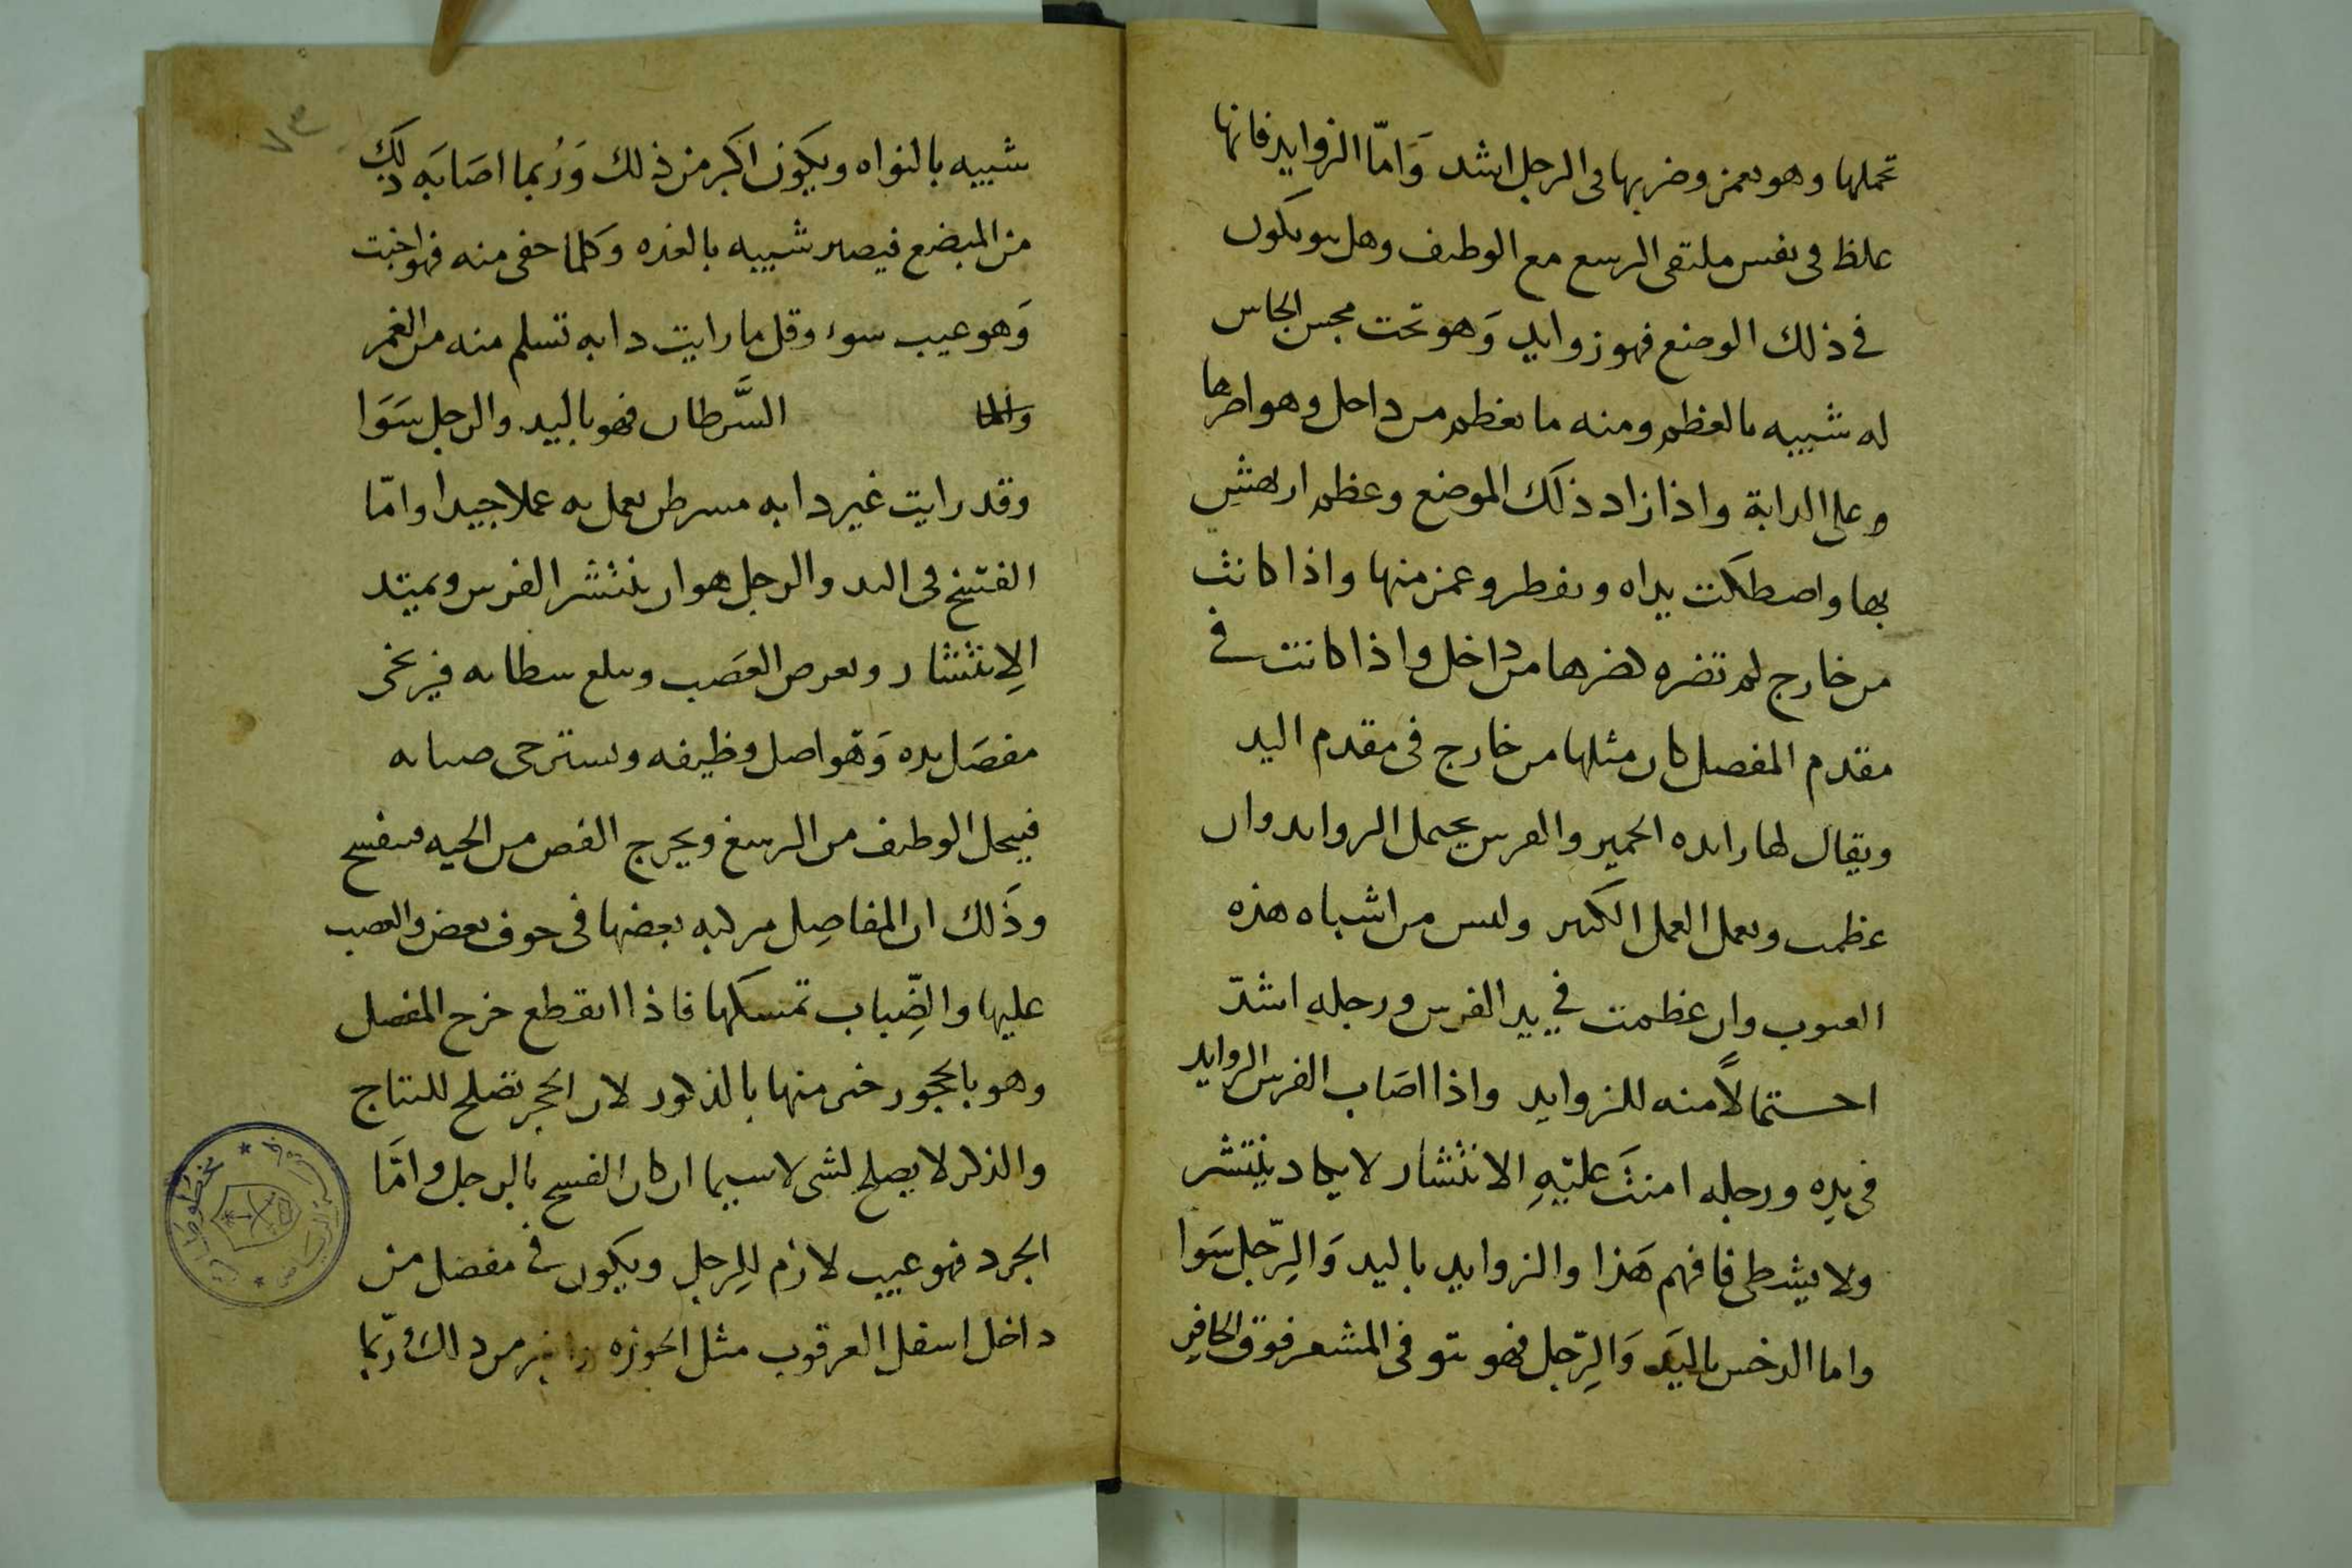 تحملها وهو يغمز وضربها فى الرجل اشد وَامّا الزوايد فانها
غلظ فى نفس ملتقى الرسغ مع الوظيف وهل هو يكون
فى ذلك الوضع فهو زوايد وَهو تحت مجس الجاس
له شبيه بالعظم ومنه ما يعظم من داخل وهو اضرها
وعلى الدابة واذا زاد ذلك الموضع وعظم ارتهش
بها واصطكت يداه وتفطر وغمز منها واذا كانت
من خارج لم تضره لضرها من داخل واذا كانت فى
مقدم المفصل كان مثلها من خارج فى مقدم اليد
ويقال لها زايده الحمير والفرس يحتمل الزوايد وان
عظمت ويعمل العمل الكثير وليس من اشباه هذه
العيوب وان عظمت فى يد الفرس ورجله اشدّ
احتمالاً منه للزوايد واذا اصَاب الفرس الزوايد
فى يده ورجله امنتَ عليَهِ الانتشار لا يكاد ينتشر
ولا يشظى فافهم هَذا والزوايد باليد وَالرّجل سَوا
واما الدخس باليَد وَالرّجل فهو نتو فى المشعر فوق الحافرِ
٧٣
شبيه بالنواه ويكَون اكبر من ذلك وَرُبما اصَابَه ذلك
من المبضع فيصير شبيه بالغده وَكلما خفى منه فهو اخبث
وَهو عيب سوء وقل ما رايت دابه تسلم منه من الغمز
وامّا السَّرطان فهو باليد والرجل سَوَا
وقد رايت غير دابه مسرطن يعمل به عملا جيدا وامّا
الفتخ فى اليد والرجل هو ان ينتشر الفرس ويمتد
الِانتشار ويعرض العصَب ويبلع شظاته فيرتخى
مفصَل يده وَهو اصل وظيفه ويسترخى ضبابه
فيحل الوظيف من الرسغ ويخرج الفص من الجبه فينفسخ
وذَلك ان المفاصِل مركبه بعضها فى جوف بعض والعصب
عليها والضِّباب تمسكها فاذا انقطع خرج المفصل
وهو بالحجور خير منها بالذكور لان الحجر تصلح للنتاج
والذكر لا يصلح لشى لا سيما ان كان الفسخ بالرجل وامَّا
الجرد فهو عيب لازم للِرجل ويكون فى مفصل من
داخل اسفل العرقوب مثل الجوزه واكبر من ذلك ورُبّما